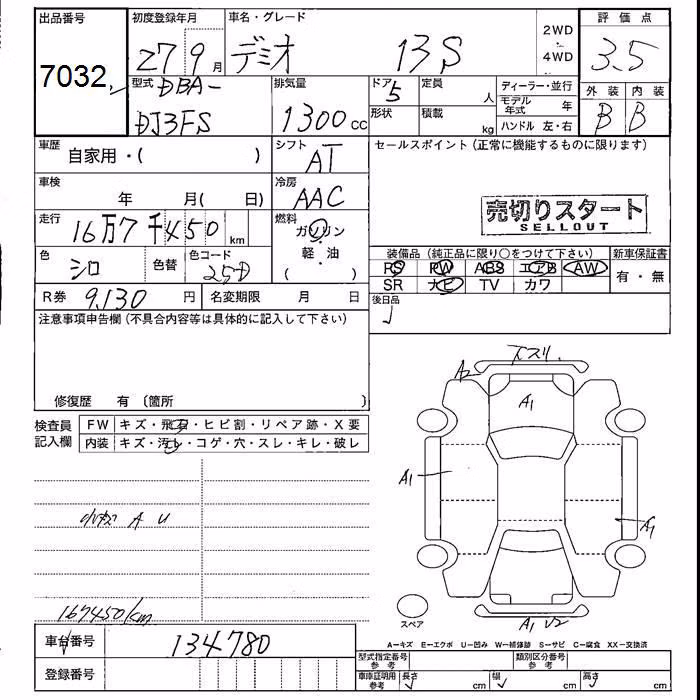 出品番号 初度登録年月 車名・グレード 2WD 評価点
7032 27 9月 デミオ 13S 4WD 3.5
型式 DBA- 排気量 ドア 5 定員 人 ディーラー・並行 外装 内装
DJ3FS 1300cc 形状 積載 kg モデル年式 年 B B
ハンドル 左・右
車歴 自家用・( ) シフト AT セールスポイント(正常に機能するものに限ります)
車検 年 月( 日) 冷房 AAC
売切りスタート
SELLOUT
走行 16万7千450km 燃料 ガソリン
軽・油
( )
色 シロ 色替 色コード 25D
装備品(純正品に限り○をつけて下さい) 新車保証書
PS PW ABS エアB AW 有・無
SR ナビ TV カワ
R券 9,130円 名変期限 月 日 後日品
注意事項申告欄(不具合内容等は具体的に記入して下さい)
修復歴 有 〔箇所 〕
検査員 FW キズ・飛石・ヒビ割・リペア跡・X要
記入欄 内装 キズ・汚レ・コゲ・穴・スレ・キレ・破レ
下スリ
A2
A1
A1
A1
小キズ A U
167450km
スペア
A1 U2
A=キズ E=エクボ U=凹み W=補修跡 S=サビ C=腐食 XX=交換済
車台番号 134780
型式指定番号 参考 類別区分番号 参考
登録番号 車庫証明用 参考 長さ cm 幅 cm 高さ cm